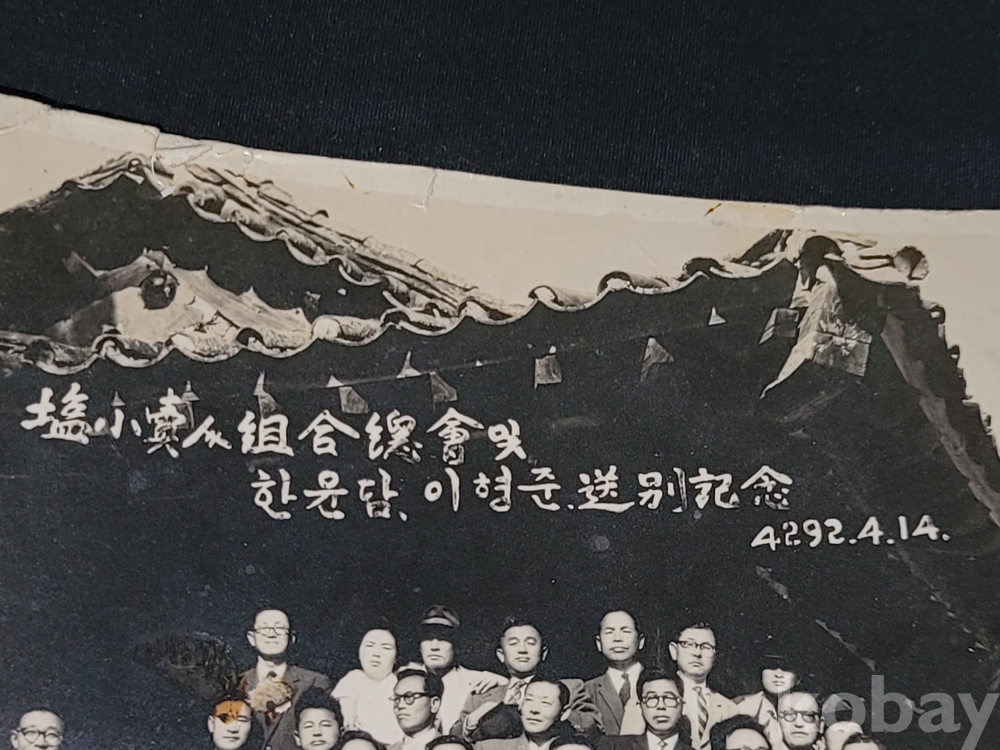 塩小賣人組合總會 및
한윤담. 이형준. 送別記念
4292.4.14.
kobay